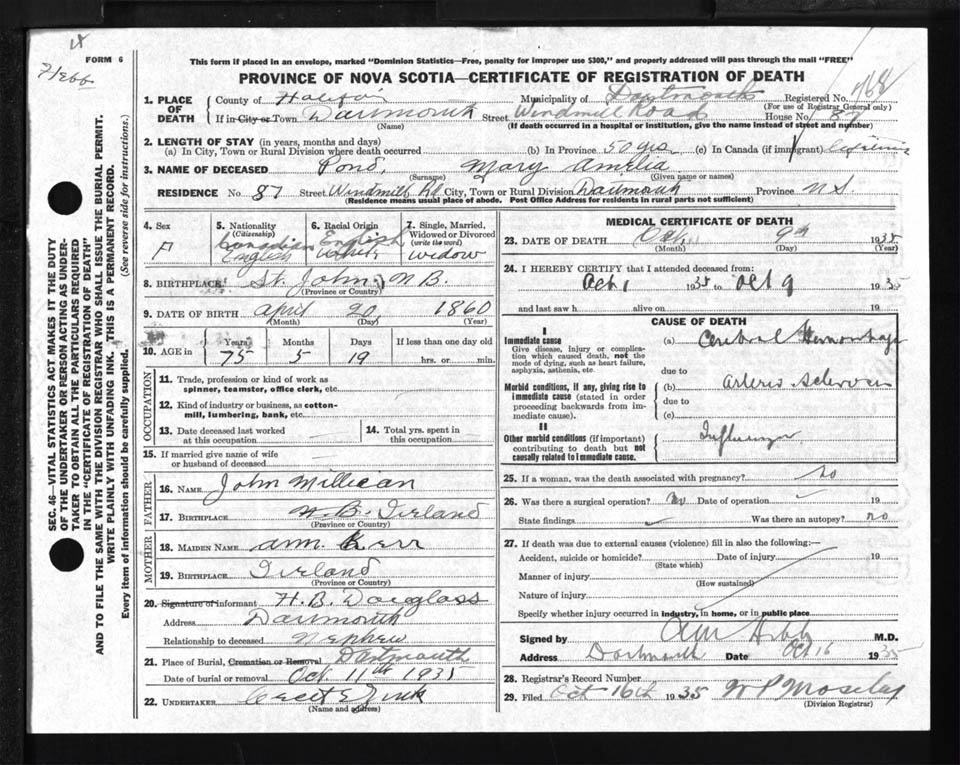 FORM 6
This form if placed in an envelope, marked "Dominion Statistics—Free, penalty for improper use $300," and properly addressed will pass through the mail "FREE"
PROVINCE OF NOVA SCOTIA—CERTIFICATE OF REGISTRATION OF DEATH
1. PLACE OF DEATH County of Halifax Municipality of Dartmouth Registered No. 468
(For use of Registrar General only)
If in City or Town Dartmouth Street Windmill Road House No. 87
(Name) (If death occurred in a hospital or institution, give the name instead of street and number)
2. LENGTH OF STAY (in years, months and days)
(a) In City, Town or Rural Division where death occurred (b) In Province 50 yrs (c) In Canada (if immigrant) lifetime
3. NAME OF DECEASED Pond, Mary Amelia
(Surname) (Given name or names)
RESIDENCE No 87 Street Windmill Rd City, Town or Rural Division Dartmouth Province N S
(Residence means usual place of abode. Post Office Address for residents in rural parts not sufficient)
4. Sex 5. Nationality (Citizenship) 6. Racial Origin 7. Single, Married, Widowed or Divorced (write the word)
F Canadian English English widow
8. BIRTHPLACE St. John, N B.
(Province or Country)
9. DATE OF BIRTH April 20, 1860
(Month) (Day) (Year)
10. AGE in Years Months Days If less than one day old
75 5 19 hrs. or min.
OCCUPATION
11. Trade, profession or kind of work as spinner, teamster, office clerk, etc.
12. Kind of industry or business, as cotton-mill, lumbering, bank, etc.
13. Date deceased last worked at this occupation 14. Total yrs. spent in this occupation
15. If married give name of wife or husband of deceased
FATHER
16. Name John Millican
17. Birthplace N. B. Ireland
(Province or Country)
MOTHER
18. Maiden Name Ann Kerr
19. Birthplace Ireland
(Province or Country)
20. Signature of informant H. B. Douglass
Address Dartmouth
Relationship to deceased Nephew
21. Place of Burial, Cremation or Removal Dartmouth
Date of burial or removal Oct. 11th 1935
22. Undertaker Cecil E Zink
(Name and address)
MEDICAL CERTIFICATE OF DEATH
23. DATE OF DEATH Oct. 9th 1935
(Month) (Day) (Year)
24. I HEREBY CERTIFY that I attended deceased from:
Oct 1 1935 to Oct 9 1935
and last saw h alive on 19
CAUSE OF DEATH
I
Immediate cause
Give disease, injury or complication which caused death, not the mode of dying, such as heart failure, asphyxia, asthenia, etc.
(a) Cerebral Hemorrhage
due to
Morbid conditions, if any, giving rise to immediate cause (stated in order proceeding backwards from immediate cause).
(b) Arterio Sclerosis
due to
(c)
II
Other morbid conditions (if important) contributing to death but not causally related to immediate cause.
Influenza
25. If a woman, was the death associated with pregnancy? no
26. Was there a surgical operation? no Date of operation 19
State findings Was there an autopsy? no
27. If death was due to external causes (violence) fill in also the following:—
Accident, suicide or homicide? Date of injury 19
(State which)
Manner of injury
(How sustained)
Nature of injury
Specify whether injury occurred in industry, in home, or in public place
Signed by M.D.
Address Dartmouth Date Oct 16 1935
28. Registrar's Record Number
29. Filed Oct 16th 1935 W P Moseley
(Division Registrar)
SEC. 46—VITAL STATISTICS ACT MAKES IT THE DUTY
OF THE UNDERTAKER OR PERSON ACTING AS UNDER-
TAKER TO OBTAIN ALL THE PARTICULARS REQUIRED
IN THE "CERTIFICATE OF REGISTRATION OF DEATH"
AND TO FILE THE SAME WITH THE DIVISION REGISTRAR WHO SHALL ISSUE THE BURIAL PERMIT.
WRITE PLAINLY WITH UNFADING INK. THIS IS A PERMANENT RECORD.
Every item of information should be carefully supplied. (See reverse side for instructions.)